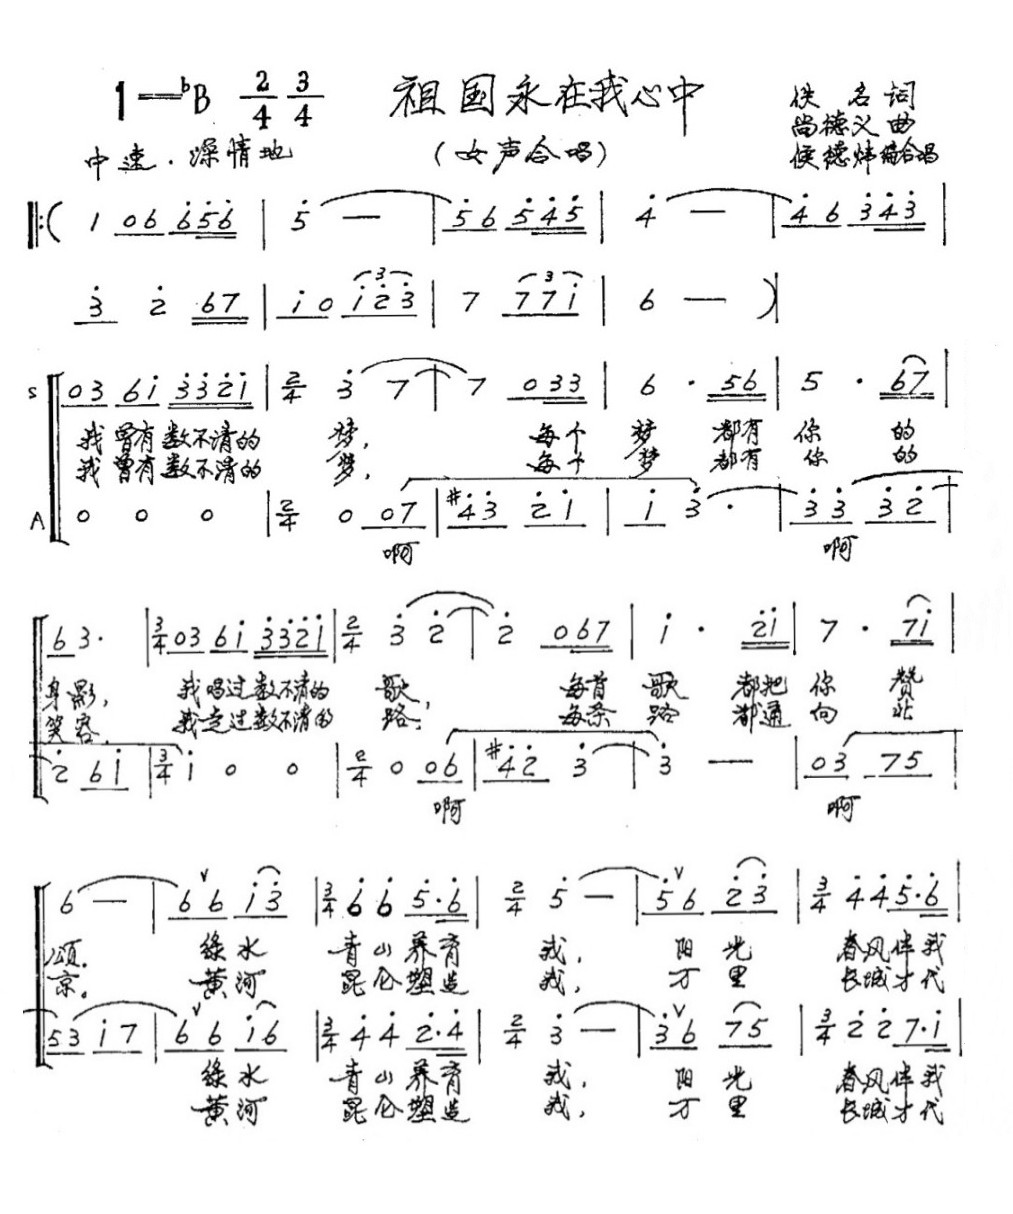 1=♭B 2/4 3/4 祖国永在我心中 佚名词
尚德义曲
中速.深情地 (女声合唱) 侯德炜编合唱
‖:( 1 06 6̇5̇6̇ | 5̇ — | 5̇6 5̇4̇5̇ | 4̇ — | 4̇6 3̇4̇3̇ |
3̇ 2̇ 67 | 1̇0 1̇2̇3̇ | 7 771̇ | 6 — )|
S 03 61̇ 3̇3̇2̇1̇ | 2/4 3̇ 7 | 7 033 | 6 · 56 | 5 · 67 |
我曾有数不清的 梦, 每个 梦 都有 你 的
我曾有数不清的 梦, 每个 梦 都有 你 的
A 0 0 0 | 2/4 0 07 | #4̇3̇ 2̇1̇ | 1̇ 3̇· | 3̇3̇ 3̇2̇ |
啊 啊
63· | 3/4 03 61̇ 3̇3̇2̇1̇ | 2/4 3̇ 2̇ | 2̇ 067 | 1̇ · 2̇1̇ | 7 · 71̇ |
身影, 我唱过数不清的 歌, 每首 歌 都把 你 赞
笑容. 我走过数不清的 路, 每条 路 都通 向 北
2̇ 61̇ | 3/4 1̇ 0 0 | 2/4 0 06 | #4̇2̇ 3̇ | 3̇ — | 03 75 |
啊 啊
6 — | 6 ∨6 1̇3̇ | 3/4 6̇ 6̇ 5̇·6̇ | 2/4 5̇ — | 5̇∨6 2̇3̇ | 3/4 4̇ 4̇ 5̇·6̇ |
颂. 绿水 青山养育 我, 阳光 春风伴我
京. 黄河 昆仑塑造 我, 万里 长城才代
53 1̇7 | 6 ∨6 1̇6 | 3/4 4̇ 4̇ 2̇·4̇ | 2/4 3̇ — | 3̇∨6 75 | 3/4 2̇ 2̇ 7·1̇ |
绿水 青山养育 我, 阳光 春风伴我
黄河 昆仑塑造 我, 万里 长城才代